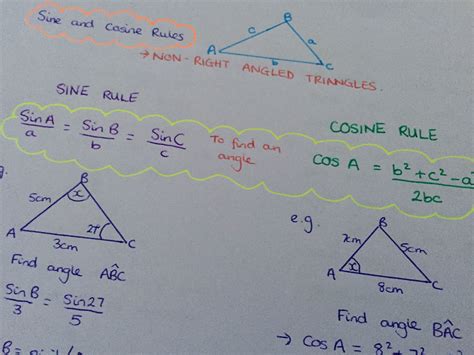 Sine and Cosine Rules
B
c a
A b C
→ NON-RIGHT ANGLED TRIANGLES.
SINE RULE
SinA/a = SinB/b = SinC/c
To find an angle
COSINE RULE
COS A = b² + c² - a²/2bc
B
x
5cm
27
A 3cm C
Find angle AB̂C
SinB/3 = Sin27/5
e.g.
B
7cm 5cm
x
A 8cm C
Find angle BÂC
→ COSA = 8² + 7²